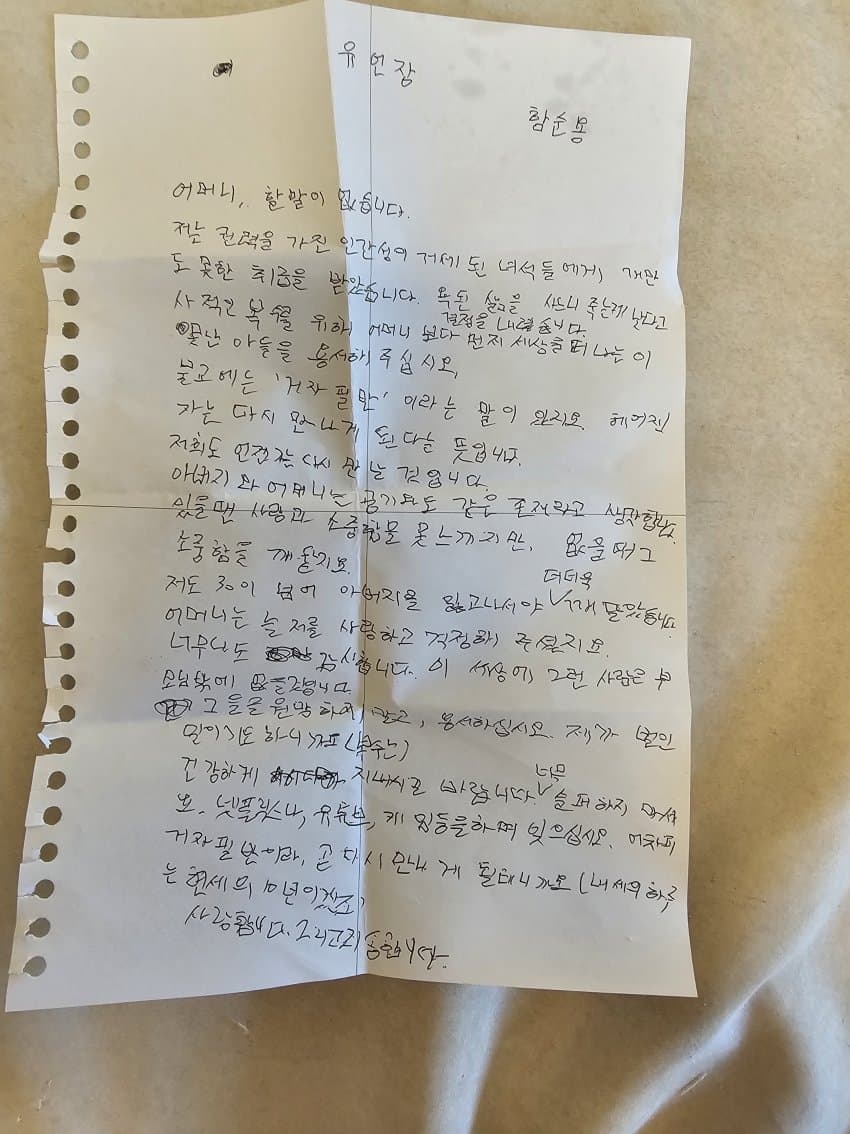 유언장
함순용
어머니, 할말이 없습니다.
저는 권력을 가진 인간성이 거세 된 녀석들에게, 개만
도 못한 취급을 받았습니다. 욕된 삶을 사느니 죽는게 낫다고
결정을 내렸습니다.
사적인 복수를 위해 어머니 보다 먼저 세상을 떠나는 이
못난 아들을 용서해 주십시오.
불교에는 '거자 필반' 이라는 말이 있지요. 헤어진
가는 다시 만나게 된다는 뜻입니다.
저희도 언젠가는 다시 만날 것입니다.
아버지와 어머니는 공기와도 같은 존재라고 생각합니다.
있을땐 사랑과 소중함을 못느끼지만, 없을때 그
소중함를 깨닫지요.
더더욱
저도 30이 넘어 아버지를 잃고나서야 깨달았습니다.
어머니는 늘 저를 사랑하고 걱정해 주셨지요.
너무나도 감사합니다. 이 세상에, 그런 사람은 부
모님밖에 없을것입니다.
그들을 원망하지 말고, 용서하십시오. 제가 범인
이기도 하니까요 (복수는)
너무
건강하게 지내시고 바랍니다. 슬퍼하지 마세
요. 넷플릭스나, 유튜브, 게임등을하며 잊으십시오. 어차피
거자필반이라, 곧 다시 만나게 될테니까요 (내세의 하루
는 현세의 10년이겠죠)
사랑합니다. 그리고 죄송합니다.